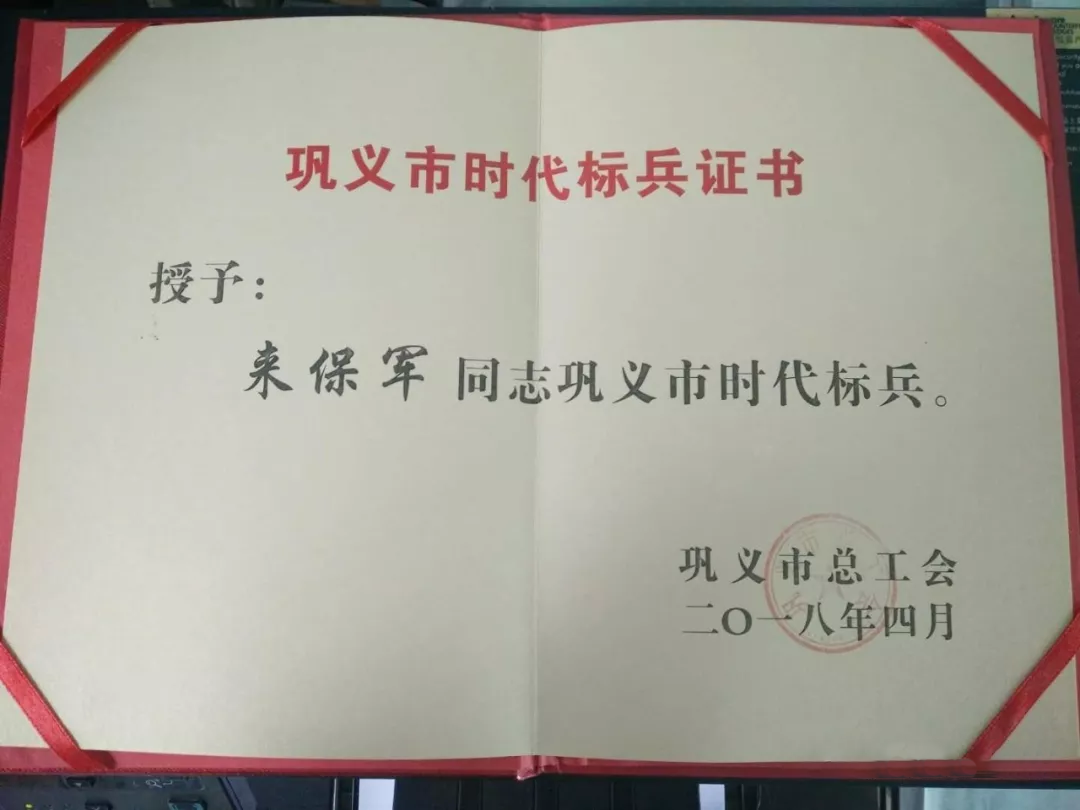 巩义市时代标兵证书
授予：
来保军 同志巩义市时代标兵。
巩义市总工会
二〇一八年四月